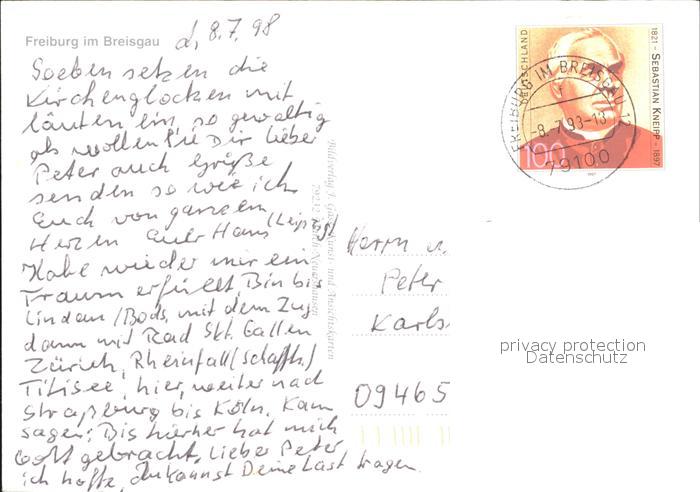 Freiburg im Breisgau
d, 8.7.98
Soeben setzen die
Kirchenglocken mit
läuten ein, so gewaltig
als wollen sie Dir lieber
Peter auch Grüße
senden so wie ich
Euch von ganzem
Herzen Euer Hans (Leipzig)
Habe wieder mir ein
Traum erfüllt, Bin bis
Lindau/Bods, mit dem Zug
dann mit Rad Skt. Gallen
Zürich, Rheinfall (Schaffh.)
Titisee, hier, weiter nach
Straßburg bis Köln. Kann
sagen: Bis hierher hat mich
Gott gebracht, lieber Peter
ich hoffe, du kannst Deine Last tragen.
DEUTSCHLAND
1821 - SEBASTIAN KNEIPP - 1897
100
FREIBURG IM BREISGAU 12
-8.-7.98-18
79100
Herrn u.
Peter
Karls
09465
privacy protection
Datenschutz